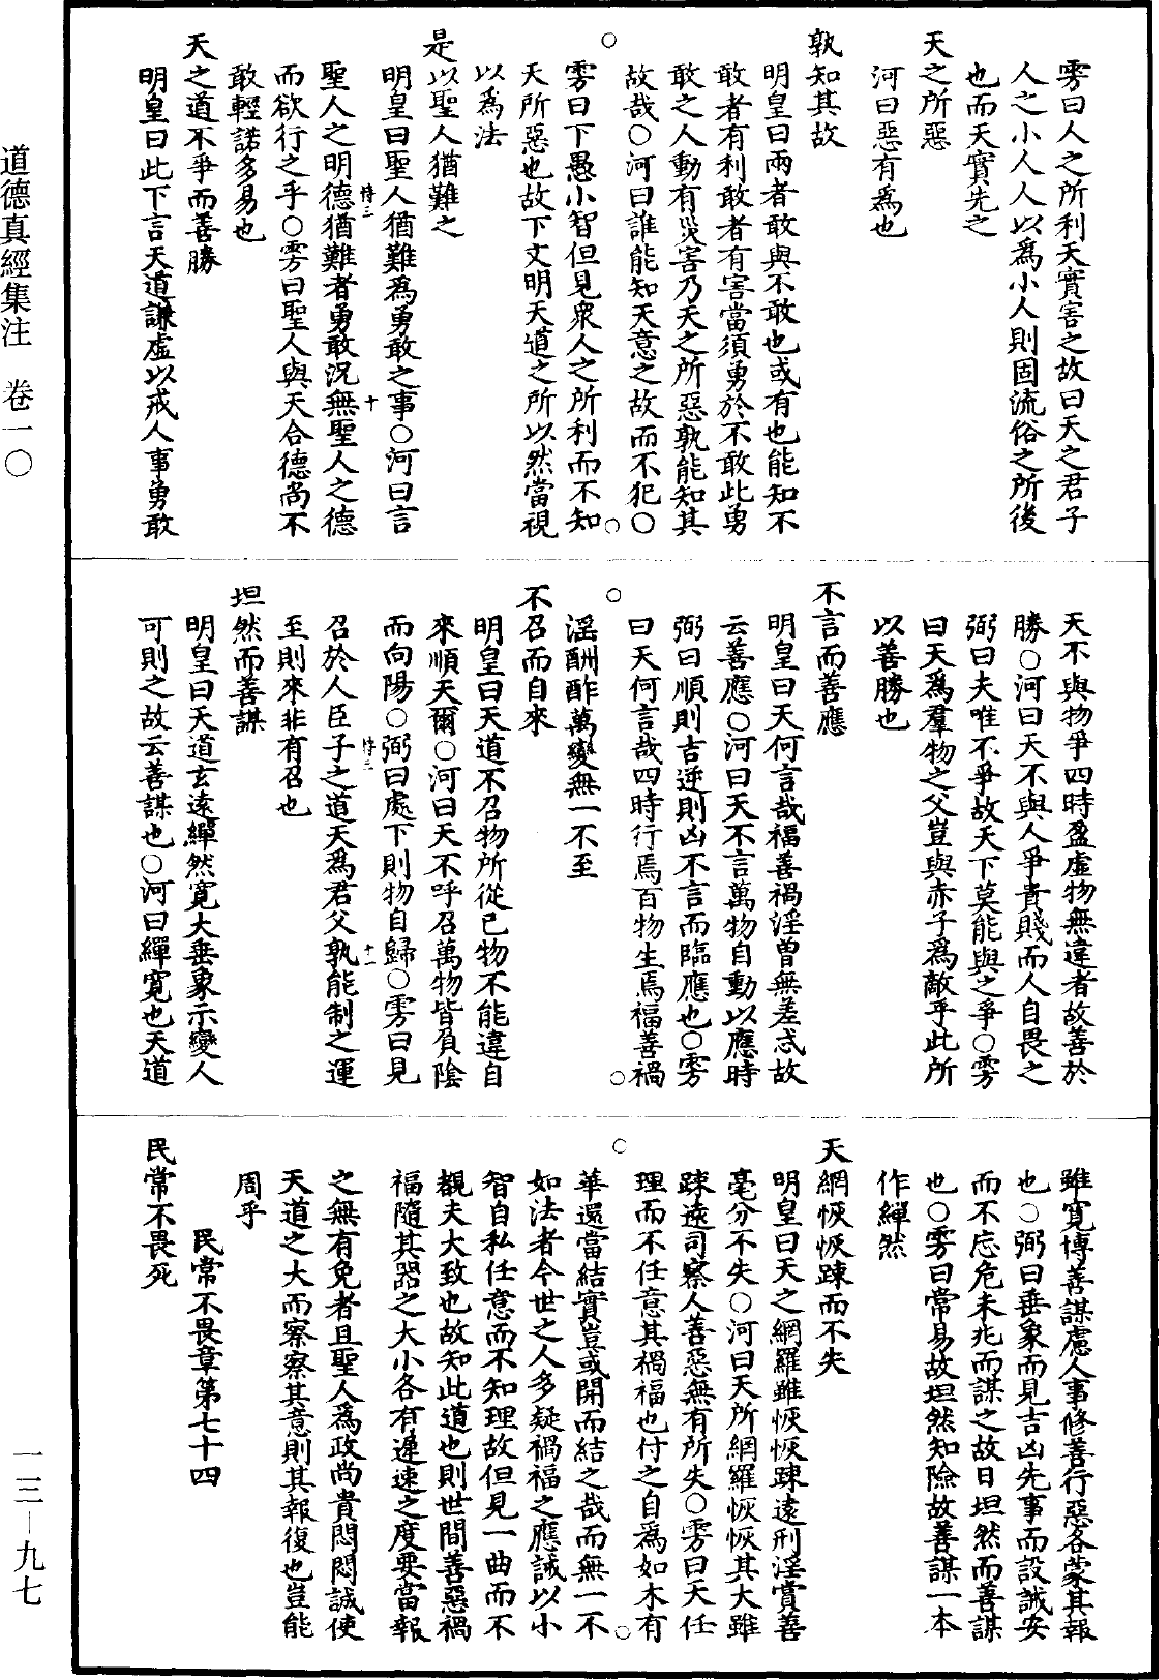 道德真經集注　卷一〇
雱曰人之所利天實害之故曰天之君子
人之小人人以爲小人則固流俗之所後
也而天實先之
天之所惡
河曰惡有爲也
孰知其故
明皇曰兩者敢與不敢也或有也能知不
敢者有利敢者有害當須勇於不敢此勇
敢之人動有災害乃天之所惡孰能知其
故哉○河曰誰能知天意之故而不犯○
雱曰下愚小智但見衆人之所利而不知
天所惡也故下文明天道之所以然當視
以爲法
是以聖人猶難之
明皇曰聖人猶難爲勇敢之事○河曰言
聖人之明德猶難者勇敢況無聖人之德
而欲行之乎○雱曰聖人與天合德尚不
敢輕諾多易也
天之道不爭而善勝
明皇曰此下言天道謙虛以戒人事勇敢
天不與物爭四時盈虛物無違者故善於
勝○河曰天不與人爭貴賤而人自畏之
弼曰夫唯不爭故天下莫能與之爭○雱
曰天爲羣物之父豈與赤子爲敵乎此所
以善勝也
不言而善應
明皇曰天何言哉福善禍淫曾無差忒故
云善應○河曰天不言萬物自動以應時
弼曰順則吉逆則凶不言而臨應也○雱
曰天何言哉四時行焉百物生焉福善禍
淫酬酢萬變無一不至
不召而自來
明皇曰天道不召物所從已物不能違自
來順天爾○河曰天不呼召萬物皆負陰
而向陽○弼曰處下則物自歸○雱曰見
召於人臣子之道天爲君父孰能制之運
至則來非有召也
坦然而善謀
明皇曰天道玄遠繟然寬大垂象示變人
可則之故云善謀也○河曰繟寬也天道
雖寬博善謀慮人事修善行惡各蒙其報
也○弼曰垂象而見吉凶先事而設誠安
而不忘危未兆而謀之故曰坦然而善謀
也○雱曰常易故坦然知險故善謀一本
作繟然
天網恢恢踈而不失
明皇曰天之網羅雖恢恢踈遠刑淫賞善
毫分不失○河曰天所網羅恢恢其大雖
踈遠司察人善惡無有所失○雱曰天任
理而不任意其禍福也付之自爲如木有
華還當結實豈或開而結之哉而無一不
如法者今世之人多疑禍福之應誠以小
智自私任意而不知理故但見一曲而不
覩夫大致也故知此道也則世間善惡禍
福隨其器之大小各有遲速之度要當報
之無有免者且聖人爲政尚貴悶悶誠使
天道之大而察察其意則其報復也豈能
周乎
民常不畏章第七十四
民常不畏死
一三－九七